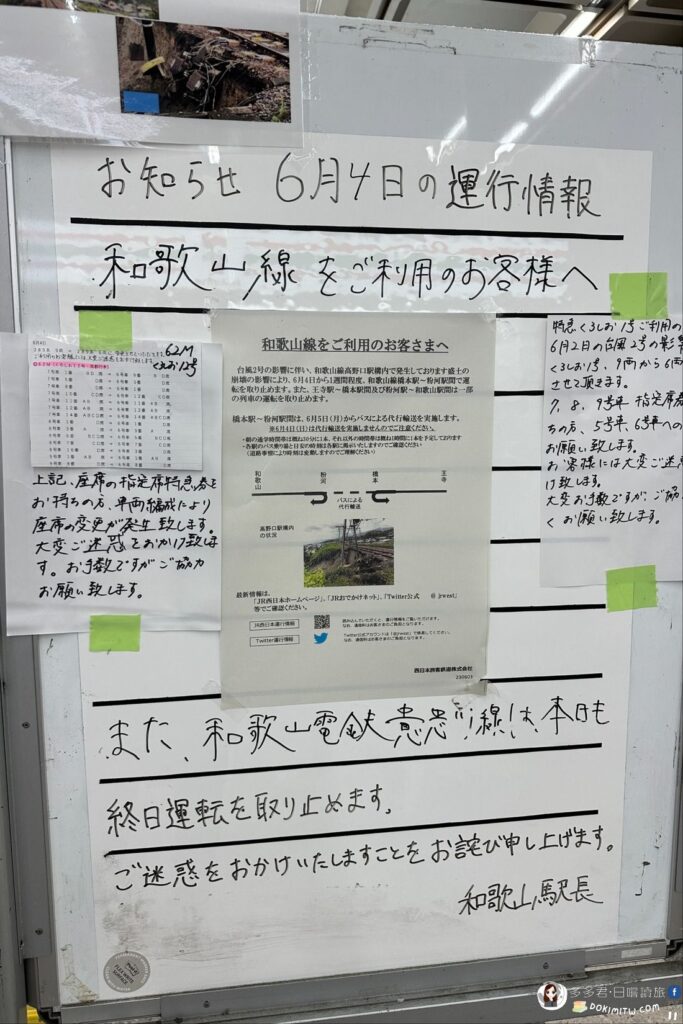 お知らせ 6月4日の運行情報
和歌山線をご利用のお客様へ
和歌山線をご利用のお客さまへ
台風2号の影響に伴い、和歌山線高野口駅構内で発生しております盛土の
崩壊の影響により、6月4日から1週間程度、和歌山線橋本駅～粉河駅間で運
転を取り止めます。また、王寺駅～橋本駅間及び粉河駅～和歌山駅間は一部
の列車の運転を取り止めます。
橋本駅～粉河駅間は、6月5日(月)からバスによる代行輸送を実施します。
※6月4日(日)は代行輸送を実施しませんのでご注意ください。
・朝の通学時間帯は概ね30分に1本、それ以外の時間帯は概ね1時間に1本を予定しております
・各駅のバス乗り場と目安の時刻は各駅に掲示いたしますのでご確認ください
(道路事情により時刻は変動しますのでご理解ください)
和歌山 粉河 橋本 王寺
バスによる
代行輸送
高野口駅構内
の状況
最新情報は、
「JR西日本ホームページ」、「JRおでかけネット」、「Twitter公式 @jrwest」
等でご確認ください。
JR西日本運行情報
Twitter運行情報
西日本旅客鉄道株式会社
230603
62M
くろしお12号
上記、座席の指定席特急券を
お持ちの方、車両編成により
座席の変更が発生致します。
大変ご迷惑をおかけ致しま
す。お手数ですがご協力
お願い致します。
特急くろしお1号ご利用の
6月2日の台風2号の影響
くろしお1号、9両から6両
させて頂きます。
7、8、9号車 指定席券
ちの方、5号車、6号車への
お願い致します。
お客様には大変ご迷惑
け致します。
大変お手数ですが、ご協
くお願い致します。
また、和歌山電鉄貴志川線は、本日も
終日運転を取り止めます。
ご迷惑をおかけいたしますことをお詫び申し上げます。
和歌山駅長
多多君·日嚐讀旅
DOKIMITW.COM